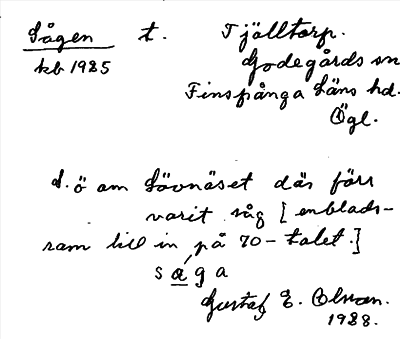 Sågen t. Tjälltorp.
kb 1985 Godegårds sn
Finspånga Läns hd.
Ögl.
S.ö om Lövnäset där förr
varit såg [enblads-
ram till in på 70-talet.]
såga
Gustaf E. Olson.
1928.